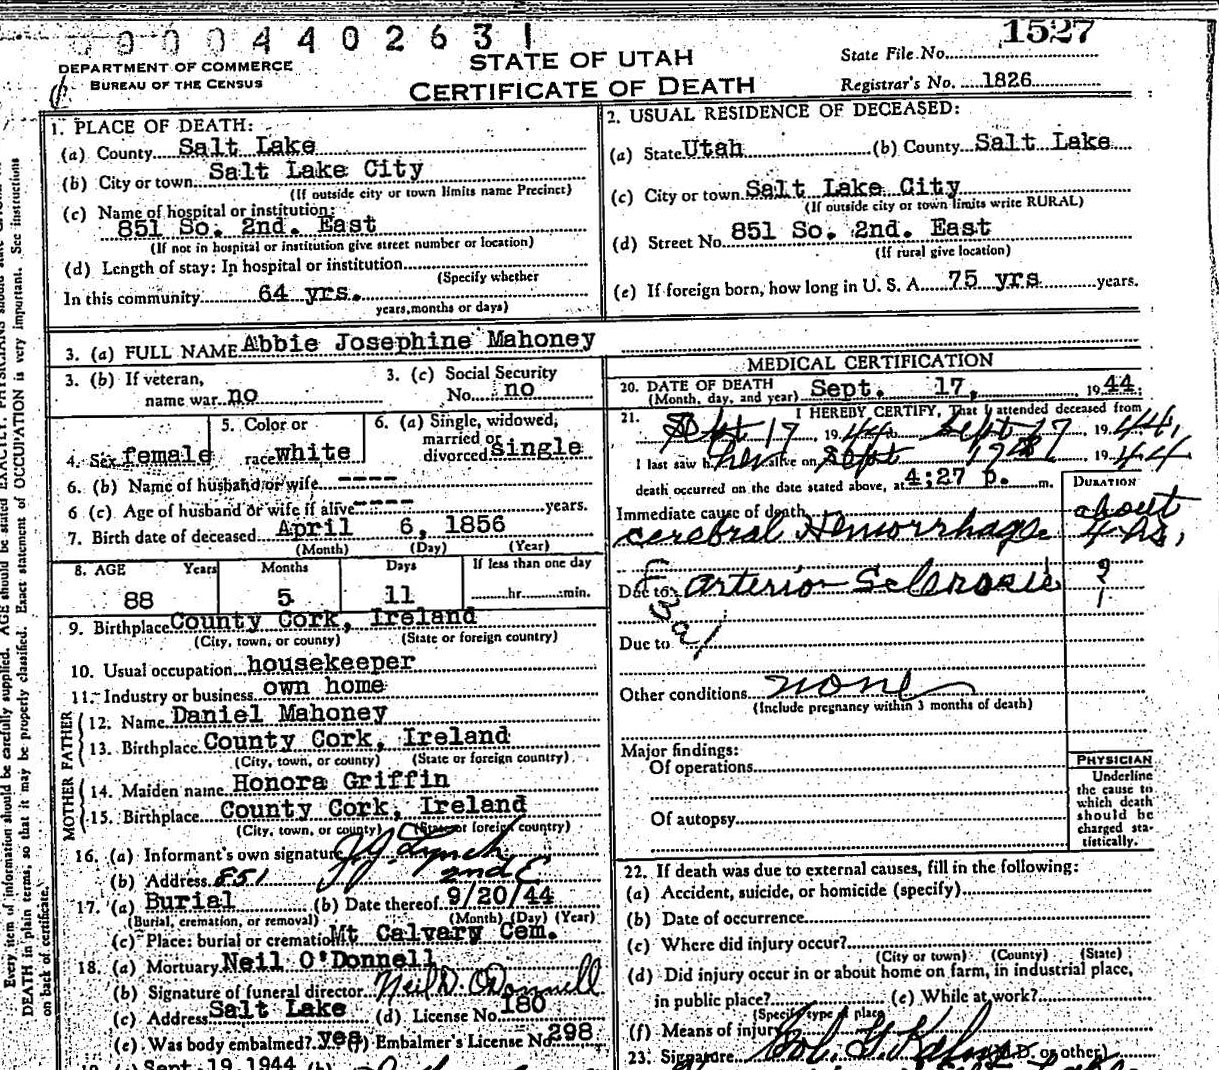 0 0 0 0 4 4 0 2 6 3 1
1527
DEPARTMENT OF COMMERCE
BUREAU OF THE CENSUS
STATE OF UTAH
CERTIFICATE OF DEATH
State File No.
Registrar's No. 1826
1. PLACE OF DEATH:
(a) County Salt Lake
(b) City or town Salt Lake City
(If outside city or town limits name Precinct)
(c) Name of hospital or institution:
851 So. 2nd. East
(If not in hospital or institution give street number or location)
(d) Length of stay: In hospital or institution
(Specify whether
In this community 64 yrs.
years, months or days)
2. USUAL RESIDENCE OF DECEASED:
(a) State Utah (b) County Salt Lake
(c) City or town Salt Lake City
(If outside city or town limits write RURAL)
(d) Street No. 851 So. 2nd. East
(If rural give location)
(e) If foreign born, how long in U. S. A. 75 yrs years.
3. (a) FULL NAME Abbie Josephine Mahoney
3. (b) If veteran,
name war no
3. (c) Social Security
No. no
4. Sex female
5. Color or
race white
6. (a) Single, widowed,
married or
divorced single
6. (b) Name of husband or wife ----
6 (c) Age of husband or wife if alive ---- years.
7. Birth date of deceased April 6, 1856
(Month) (Day) (Year)
8. AGE Years Months Days If less than one day
88 5 11 hr. min.
9. Birthplace County Cork, Ireland
(City, town, or county) (State or foreign country)
10. Usual occupation housekeeper
11. Industry or business own home
FATHER
12. Name Daniel Mahoney
13. Birthplace County Cork, Ireland
(City, town, or county) (State or foreign country)
MOTHER
14. Maiden name Honora Griffin
15. Birthplace County Cork, Ireland
(City, town, or county) (State or foreign country)
16. (a) Informant's own signature J J Lynch
(b) Address 851 2nd E
17. (a) Burial (b) Date thereof 9/20/44
(Burial, cremation, or removal) (Month) (Day) (Year)
(c) Place: burial or cremation Mt Calvary Cem.
18. (a) Mortuary Neil O'Donnell
(b) Signature of funeral director Neil D. O'Donnell
(c) Address Salt Lake (d) License No. 180
(e) Was body embalmed? yes (f) Embalmer's License No. 298
Sept. 19 1944 (b)
MEDICAL CERTIFICATION
20. DATE OF DEATH
(Month, day, and year) Sept. 17, 1944
21. I HEREBY CERTIFY, That I attended deceased from
Sept 17 1944 to Sept 17 1944,
I last saw her alive on Sept 17 1944
death occurred on the date stated above, at 4;27 p. m.
DURATION
Immediate cause of death
cerebral Hemorrhage about 4 hs,
Due to arterio Sclerosis ?
83a1
Due to
Other conditions none
(Include pregnancy within 3 months of death)
Major findings:
Of operations
Of autopsy
PHYSICIAN
Underline
the cause to
which death
should be
charged sta-
tistically.
22. If death was due to external causes, fill in the following:
(a) Accident, suicide, or homicide (specify)
(b) Date of occurrence
(c) Where did injury occur?
(City or town) (County) (State)
(d) Did injury occur in or about home on farm, in industrial place,
in public place? (e) While at work?
(Specify type of place)
(f) Means of injury
23. Signature (M.D. or other)
Every item of information should be carefully supplied. AGE should be stated EXACTLY. PHYSICIANS should state
DEATH in plain terms, so that it may be properly classified. Exact statement of OCCUPATION is very important. See instructions
on back of certificate.